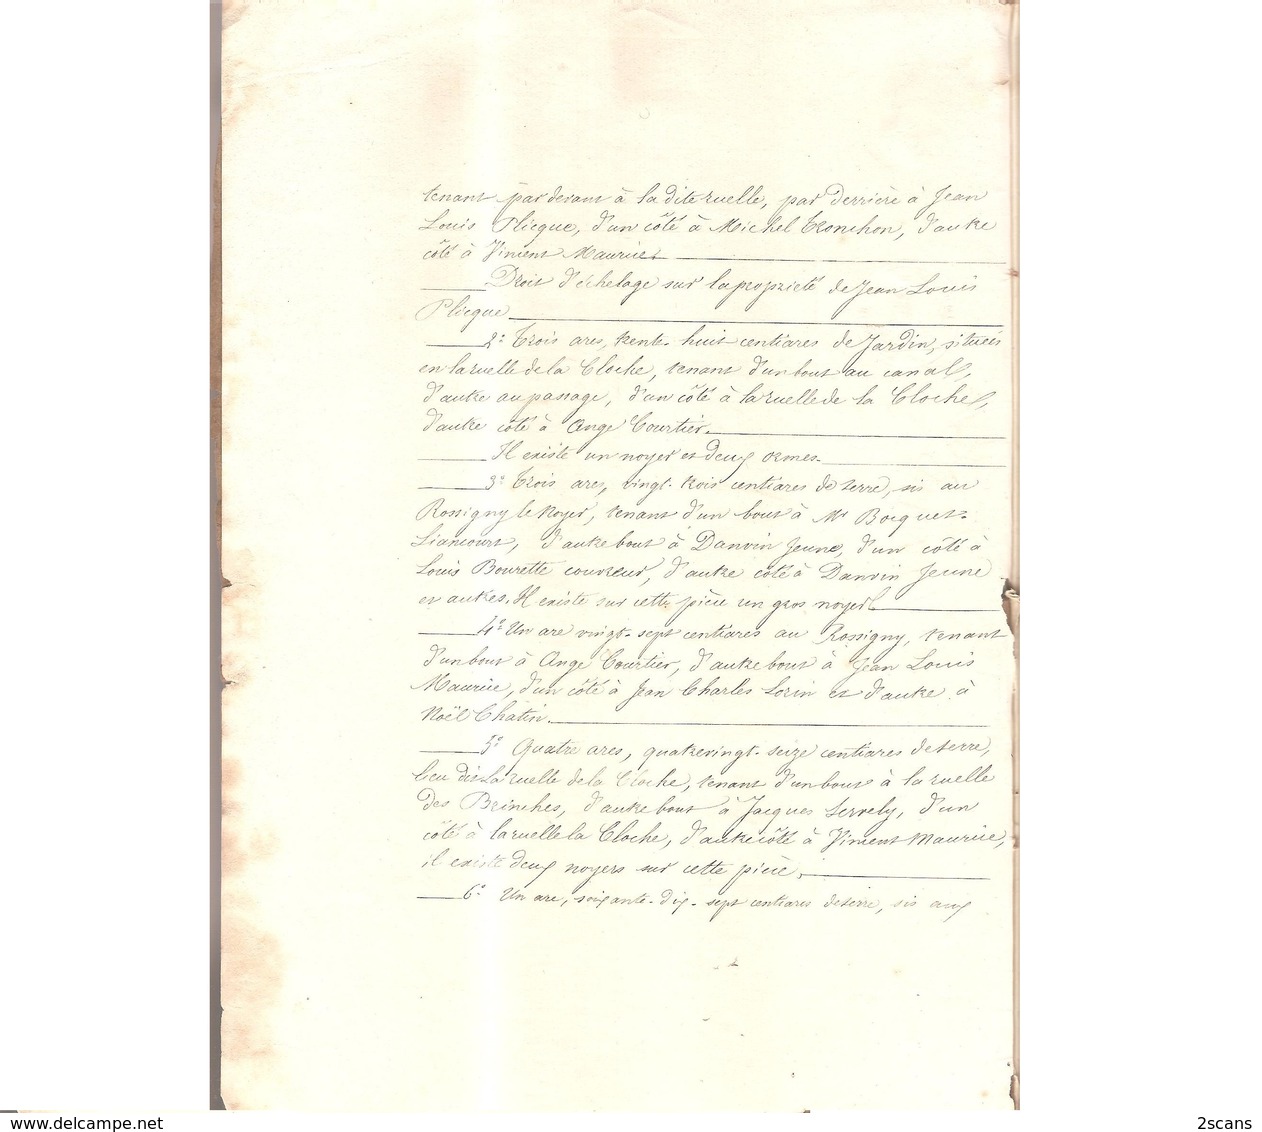 tenant par devant à la dite ruelle, par derrière à Jean
Louis Plicque, d'un côté à Michel Tronchon, d'autre
côté à Vincent Maurice.
Droit d'échelage sur la propriété de Jean Louis
Plicque
2° Trois ares, trente-huit centiares de Jardin, situés
en la ruelle de la Cloche, tenant d'un bout au canal,
d'autre au passage, d'un côté à la ruelle de la Cloche,
d'autre côté à Ange Courtier.
Il existe un noyer et deux ormes.
3° Trois ares, vingt-trois centiares de terre, sis au
Rossigny le noyer, tenant d'un bout à Mr Bocquet-
Liancourt, d'autre bout à Danvin Jeune, d'un côté à
Louis Bourette couvreur, d'autre côté à Danvin Jeune
et autres. Il existe sur cette pièce un gros noyer.
4° Un are vingt-sept centiares au Rossigny, tenant
d'un bout à Ange Courtier, d'autre bout à Jean Louis
Maurice, d'un côté à Jean Charles Lorin et d'autre à
Noël Chatin.
5° Quatre ares, quatre vingt-seize centiares de terre,
lieu dit la ruelle de la Cloche, tenant d'un bout à la ruelle
des Brinches, d'autre bout à Jacques Servely, d'un
côté à la ruelle la Cloche, d'autre côté à Vincent Maurice,
il existe deux noyers sur cette pièce.
6° Un are, soixante-dix-sept centiares de terre, sis aux
www.delcampe.net
2scans